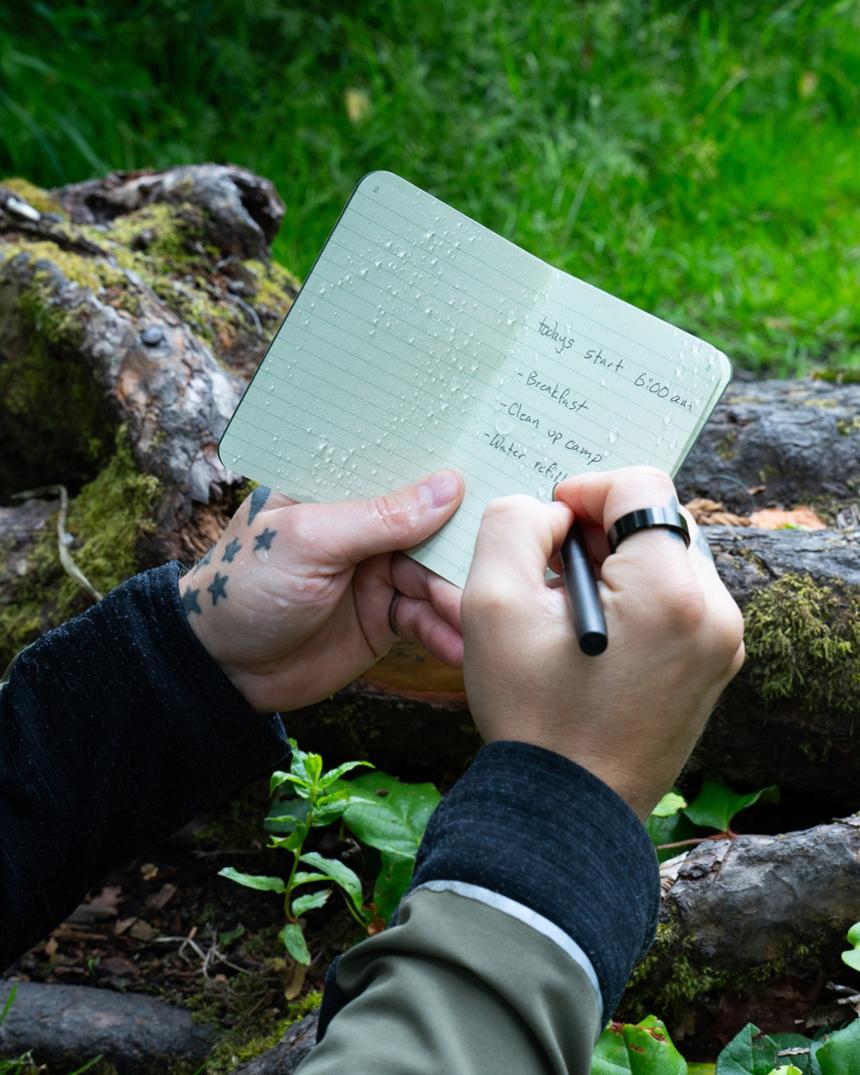 2
3
todays start 6:00 am
-Breakfast
-Clean up camp
-Water refill